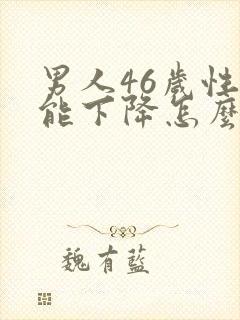 男人46歲性
能下降怎麼
魏有藍